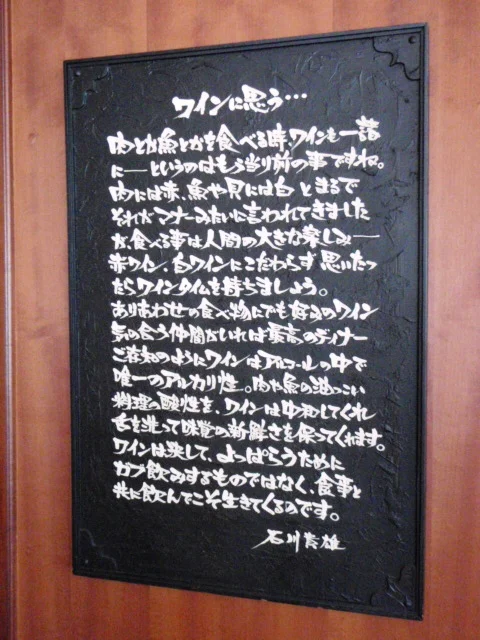 ワインに思う…
肉とか魚とかを食べる時、ワインも一諸
に──というのはもう当り前の事ですね。
肉には赤、魚や貝には白 とまるで
それがマナーみたいに言われてきました
が、食べる事は人間の大きな楽しみ──
赤ワイン、白ワインにこだわらず 思いたっ
たらワインタイムを持ちましょう。
ありあわせの食べ物にでも好みのワイン
気の合う仲間がいれば最高のディナー
ご存知のようにワインはアルコールの中で
唯一のアルカリ性。肉や魚の油っこい
料理の酸性を、ワインは中和してくれ
舌を洗って味覚の新鮮さを保ってくれます。
ワインは決して、よっぱらうために
ガブ飲みするものではなく、食事と
共に飲んでこそ生きてくるのです。
石川 雄